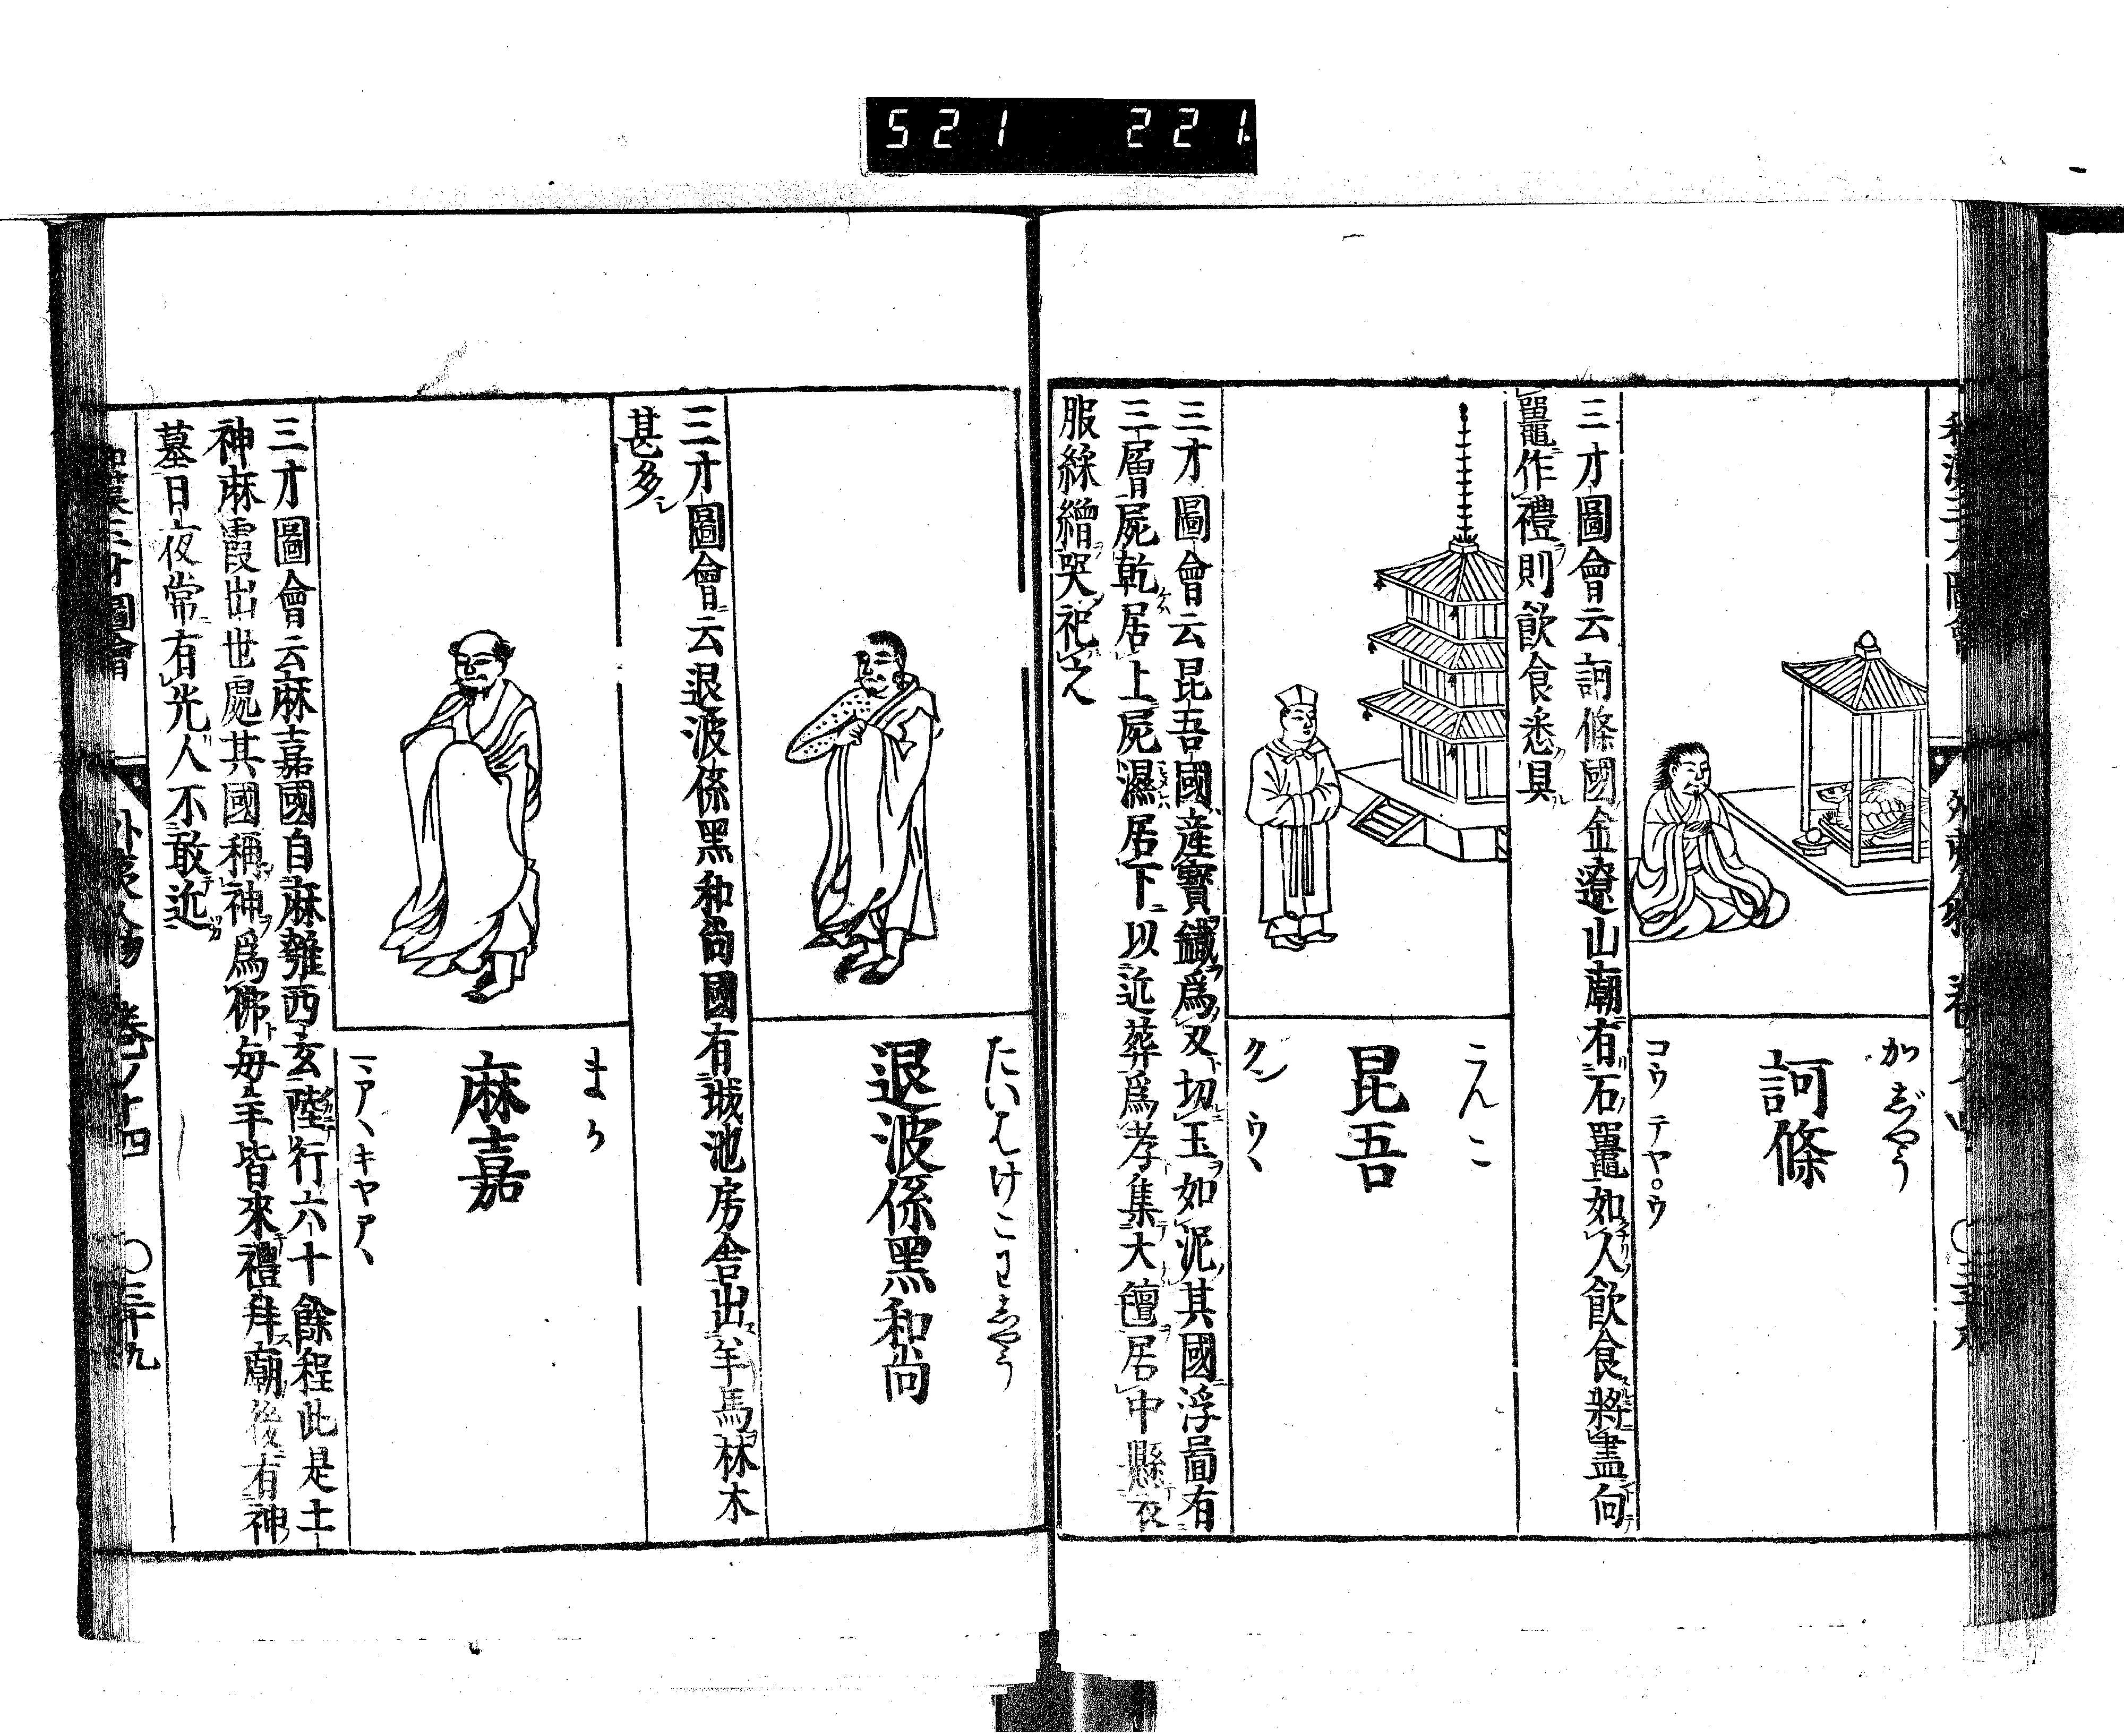 521 221
訶條
かぢやう
コウ テヤ゜ウ
三才圖會云訶條國金遼山廟有石鼉如人飲食將盡向
鼉作禮則飲食悉具
昆吾
こんご
クン ウヽ
三才圖會云昆吾國産寳鐵爲刃切玉如泥其國浮啚有
三層屍乾居上屍濕居下以近葬爲孝集大氊居中縣衣
服綵繒哭祀之
退波係黑和尚
たいはけこくをしやう
三才圖會云退波係黑和尚國有城池房舎出羊馬林木
甚多
麻嘉
まか
マアヽキヤアヽ
三才圖會云麻嘉國自麻離西去陸行六十餘程此是土
神麻霞出世處其國稱神爲佛毎年皆來禮拜廟後有神
墓日夜常有光人不敢近
和漢三才圖會 外夷人物 巻ノ十四 〇三十九